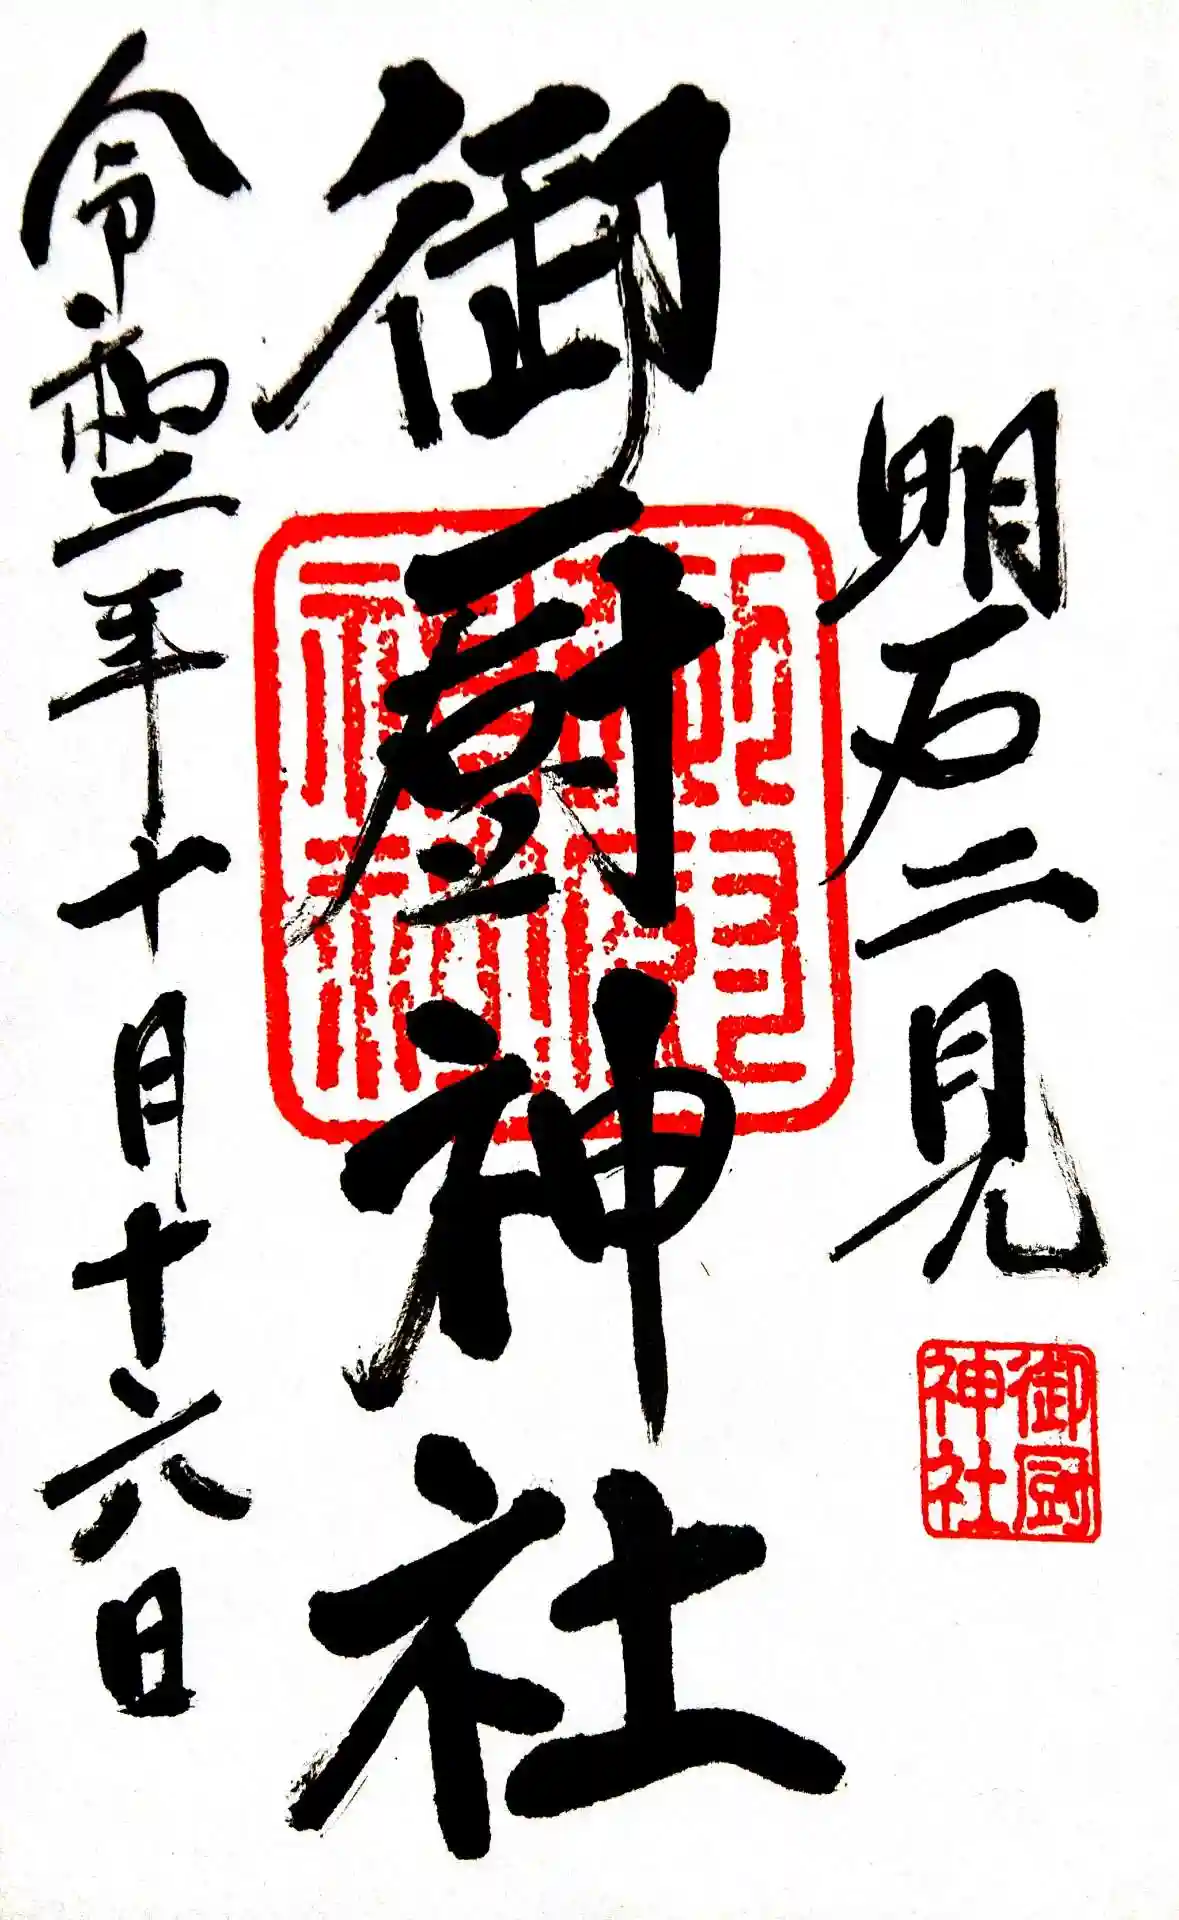 明石二見
御厨神社
御厨
神社
令和二年十月十六日